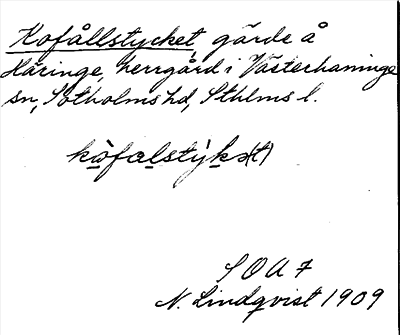 Kofållstycket, gärde å
Häringe, herrgård i Västerhaninge
sn, Sotholms hd, Sthlms l.
kòfalstỳkə(t)
SOA 7
N. Lindqvist 1909